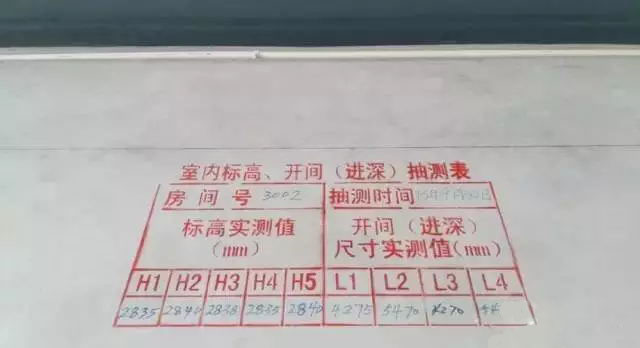 室内标高、开间（进深）抽测表
房间号 3002 抽测时间
标高实测值 开间（进深）
（mm） 尺寸实测值(mm)
H1 H2 H3 H4 H5 L1 L2 L3 L4
2835 2840 2838 2835 2840 4275 5470 4270 54